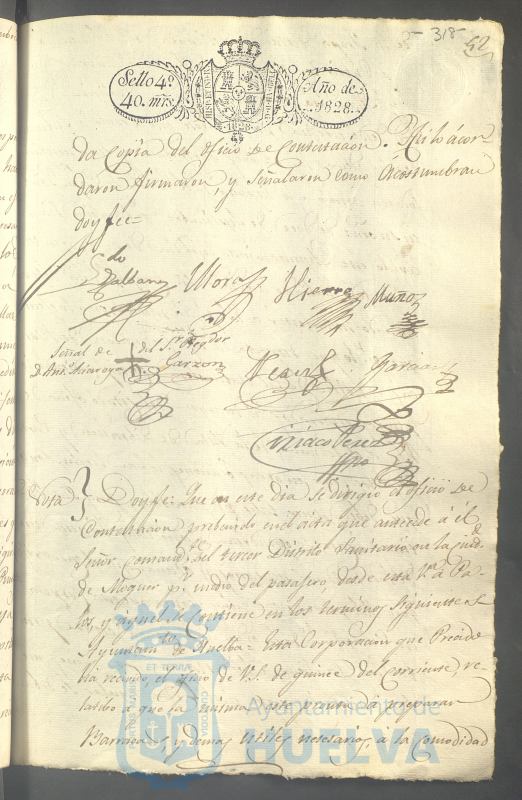 318
52
Sello 4º
40. mrs.
Año de
1828.
da Copia del oficio de Contestacion. Asi lo acor-
daron firmaron, y señalaron como Acostumbran
doy fee=
Mora
Hierro
Muñoz
Señal de
del Sr. Regdor
Garzon
Garcia
Ciriaco Perez
Nota
Doy fe: Que en este dia se dirigio el oficio de
Contestacion prebenido en el acta que antecede á el
Señor Comandte. del tercer Distrito Sanitario en la Ciudd. de
de Moguer pr. medio del pasajero desde esta Va. á Pa-
los, y aquel se contiene en los terminos siguientes
Ayuntamto. de Huelba= Esta Corporacion que Presido
ha recibido el oficio de V.S. de quince del corriente, re-
latibo á que la misma este pronta á preparar
Barracas, y demas utiles nesesarios, á la comodidad
ET TERRAE
CUSTODIA
Ayuntamiento de
HUELVA